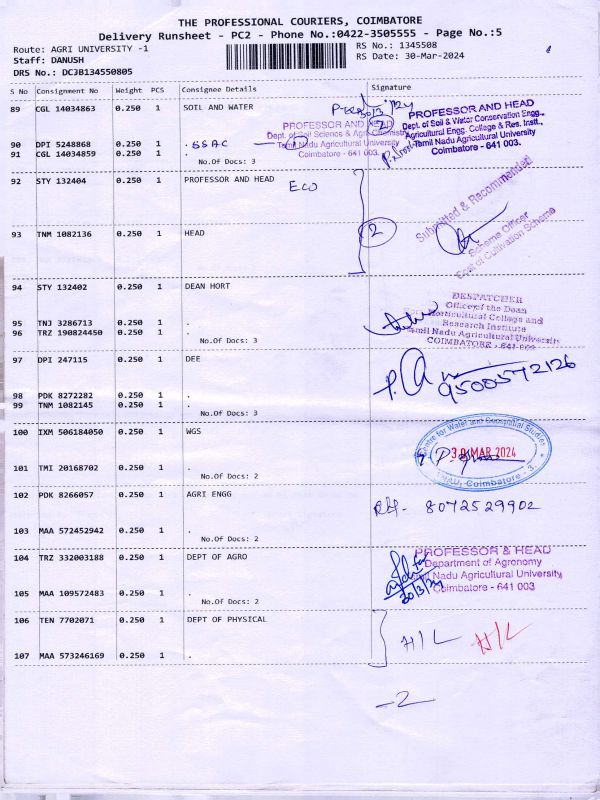 THE PROFESSIONAL COURIERS, COIMBATORE
Delivery Runsheet - PC2 - Phone No.:0422-3505555 - Page No.:5
Route: AGRI UNIVERSITY -1
Staff: DANUSH
DRS No.: DCJB134550805
RS No.: 1345508
RS Date: 30-Mar-2024
S No Consignment No Weight PCS Consignee Details Signature
89 CGL 14034863 0.250 1 SOIL AND WATER
PROFESSOR AND HEAD
Dept. of Soil Science & Agri. Chemistry
Tamil Nadu Agricultural University
Coimbatore - 641 003.
PROFESSOR AND HEAD
Dept. of Soil & Water Conservation Engg.,
Agricultural Engg. College & Res. Instt.,
Tamil Nadu Agricultural University
Coimbatore - 641 003.
90 DPI 5248868 0.250 1 . SSAC
91 CGL 14034859 0.250 1 .
No.Of Docs: 3
92 STY 132404 0.250 1 PROFESSOR AND HEAD
ECO
Submitted & Recommended
Scheme Officer
Cost of Cultivation Scheme
93 TNM 1082136 0.250 1 HEAD
2
94 STY 132402 0.250 1 DEAN HORT
DESPATCHER
Office of the Dean
Horticultural College and
Research Institute
Tamil Nadu Agricultural University
COIMBATORE - 641 003
95 TNJ 3286713 0.250 1 .
96 TRZ 190824450 0.250 1 .
No.Of Docs: 3
97 DPI 247115 0.250 1 DEE
9500572126
98 PDK 8272282 0.250 1 .
99 TNM 1082145 0.250 1 .
No.Of Docs: 3
100 IXM 506184050 0.250 1 WGS
Centre for Water and Geospatial Studies
30 MAR 2024
TNAU, Coimbatore - 3.
101 TMI 20168702 0.250 1 .
No.Of Docs: 2
102 PDK 8266057 0.250 1 AGRI ENGG
8072529902
103 MAA 572452942 0.250 1 .
No.Of Docs: 2
104 TRZ 332003188 0.250 1 DEPT OF AGRO
PROFESSOR & HEAD
Department of Agronomy
Tamil Nadu Agricultural University
Coimbatore - 641 003
30/3/24
105 MAA 109572483 0.250 1 .
No.Of Docs: 2
106 TEN 7702071 0.250 1 DEPT OF PHYSICAL
H/L H/L
107 MAA 573246169 0.250 1 .
-2